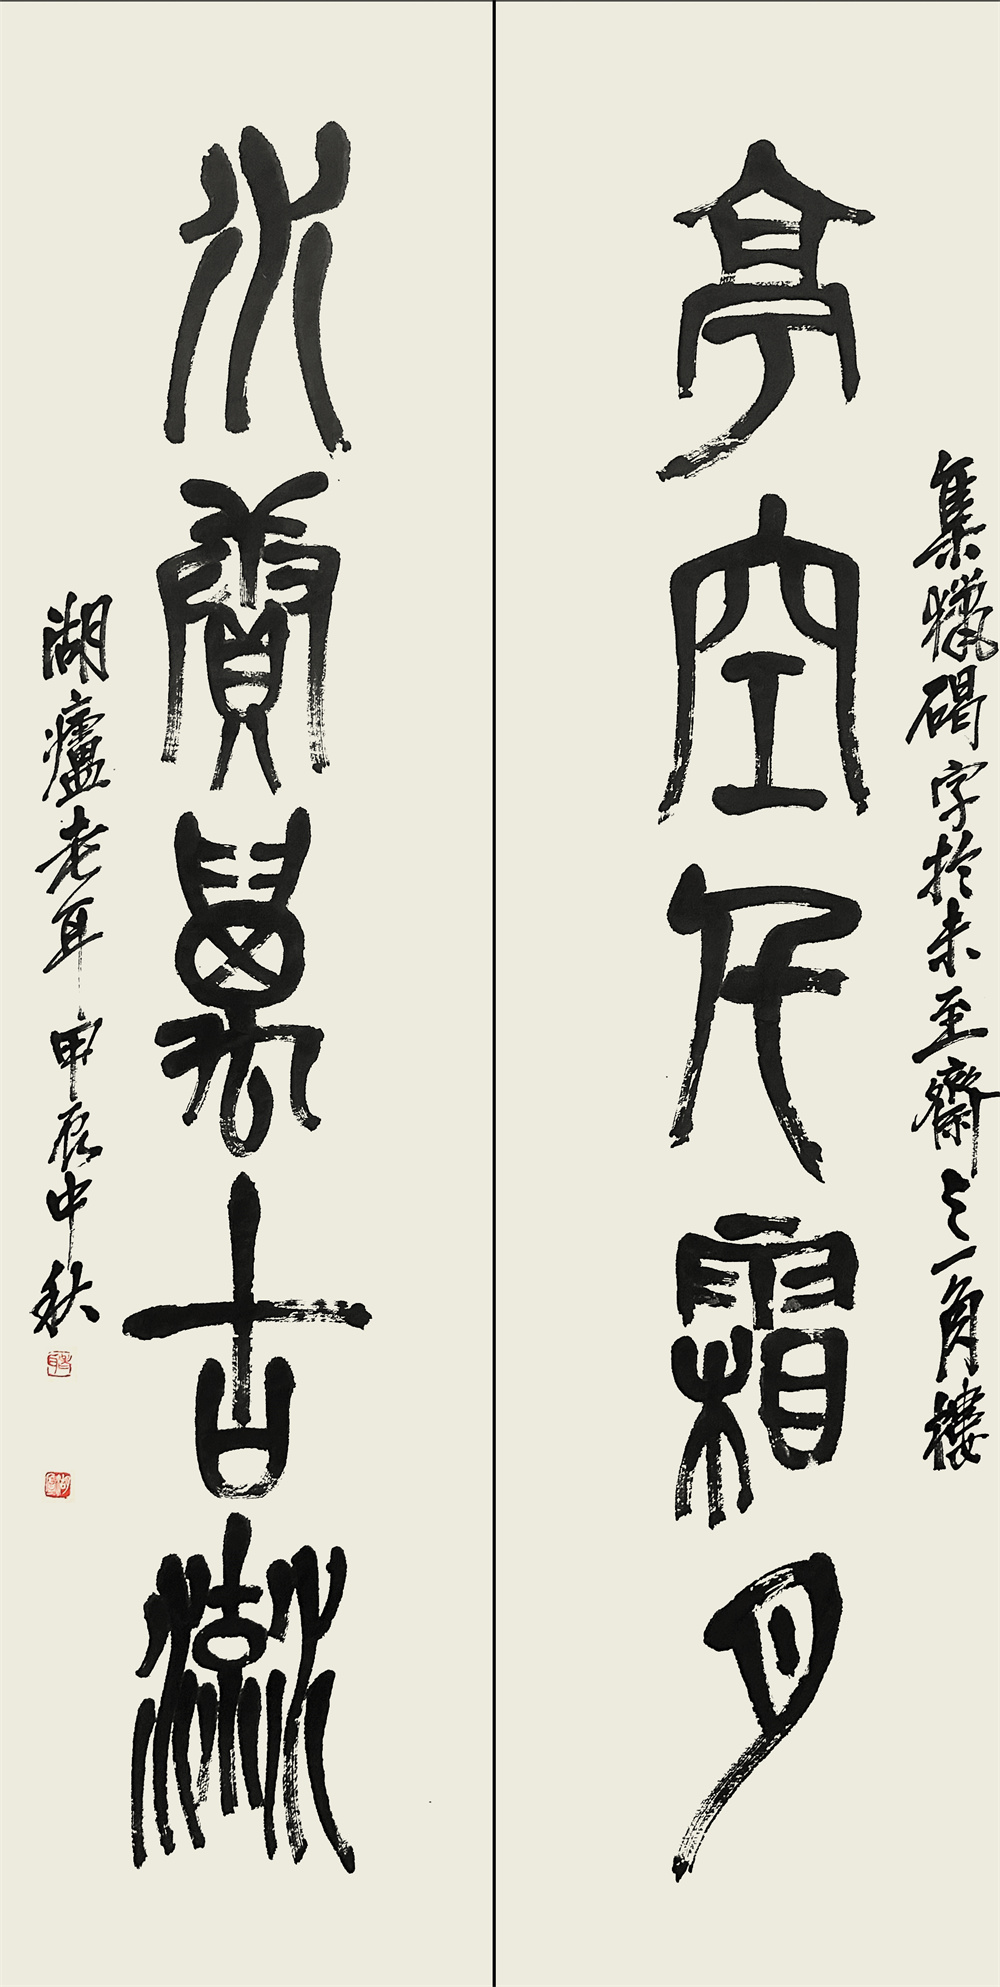 亭空千霜月
集獵碣字於未至齋之一角樓
水萬古流
湖廬老耳 甲辰中秋